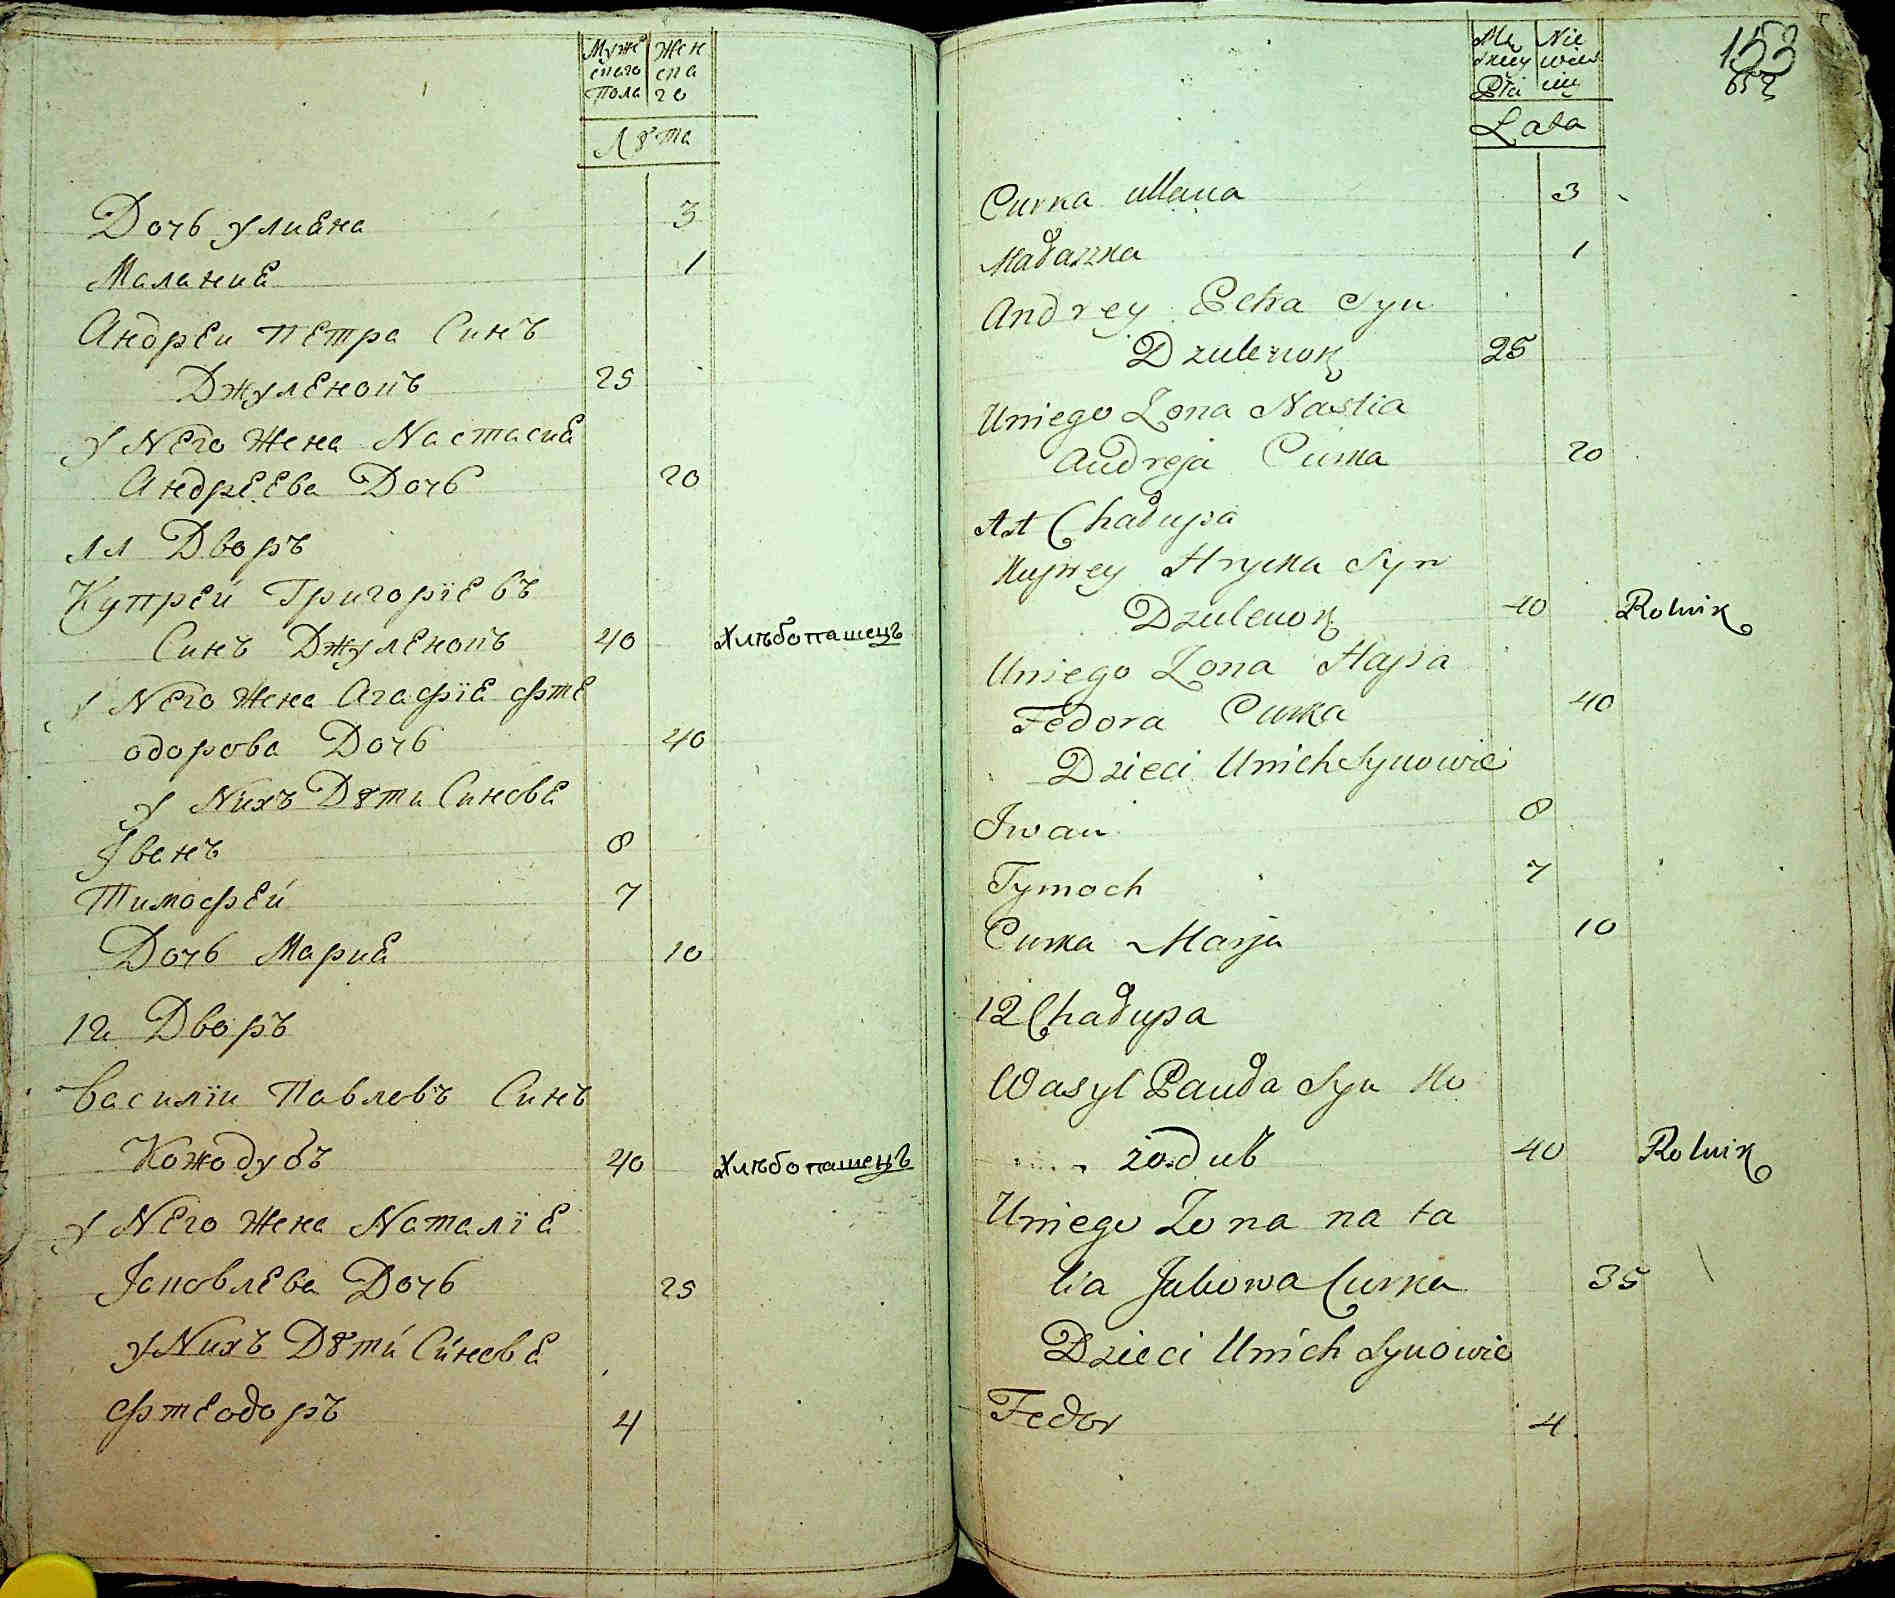 Муже Жен
скаго ска
Пола го
Лѣта
Дочь улиана 3
Маланиа 1
Андреи петра Синъ
Джуленокъ 25
у Него Жена Настасиа
Андреева Дочь 20
11 Дворъ
Купреи Григорїевъ
Синъ Джуленокъ 40 Хлѣбопашецъ
у Него Жена Агафїа Фте
одорова Дочь 40
у Нихъ Дѣти Синова
Iванъ 8
Тимофеи 7
Дочь Мариа 10
12 Дворъ
Василїи Павловъ Синъ
Кожодубъ 40 Хлѣбопашецъ
у Него Жена Наталїа
Iаковлева Дочь 25
у Нихъ Дѣти Синова
Фтеодоръ 4
153
Mę Nie
skiey wies
Płci
Lata
Curka ullana 3
Małaszka 1
Andrey Petra Syn
Dzulenok 25
Uniego Zona Nastia
Andreja Curka 20
11 Chałupa
Kuprey Hrycka Syn
Dzulenok 40 Rolnik
Uniego Zona Hapa
Fedora Curka 40
Dzieci Unich Synowie
Iwan 8
Tymoch 7
Curka Marja 10
12 Chałupa
Wasyl Pauła Syn Ko
żodub 40 Rolnik
Uniego Zona na ta
lia Jakowa Curka 35
Dzieci Unich Synowie
Fedor 4